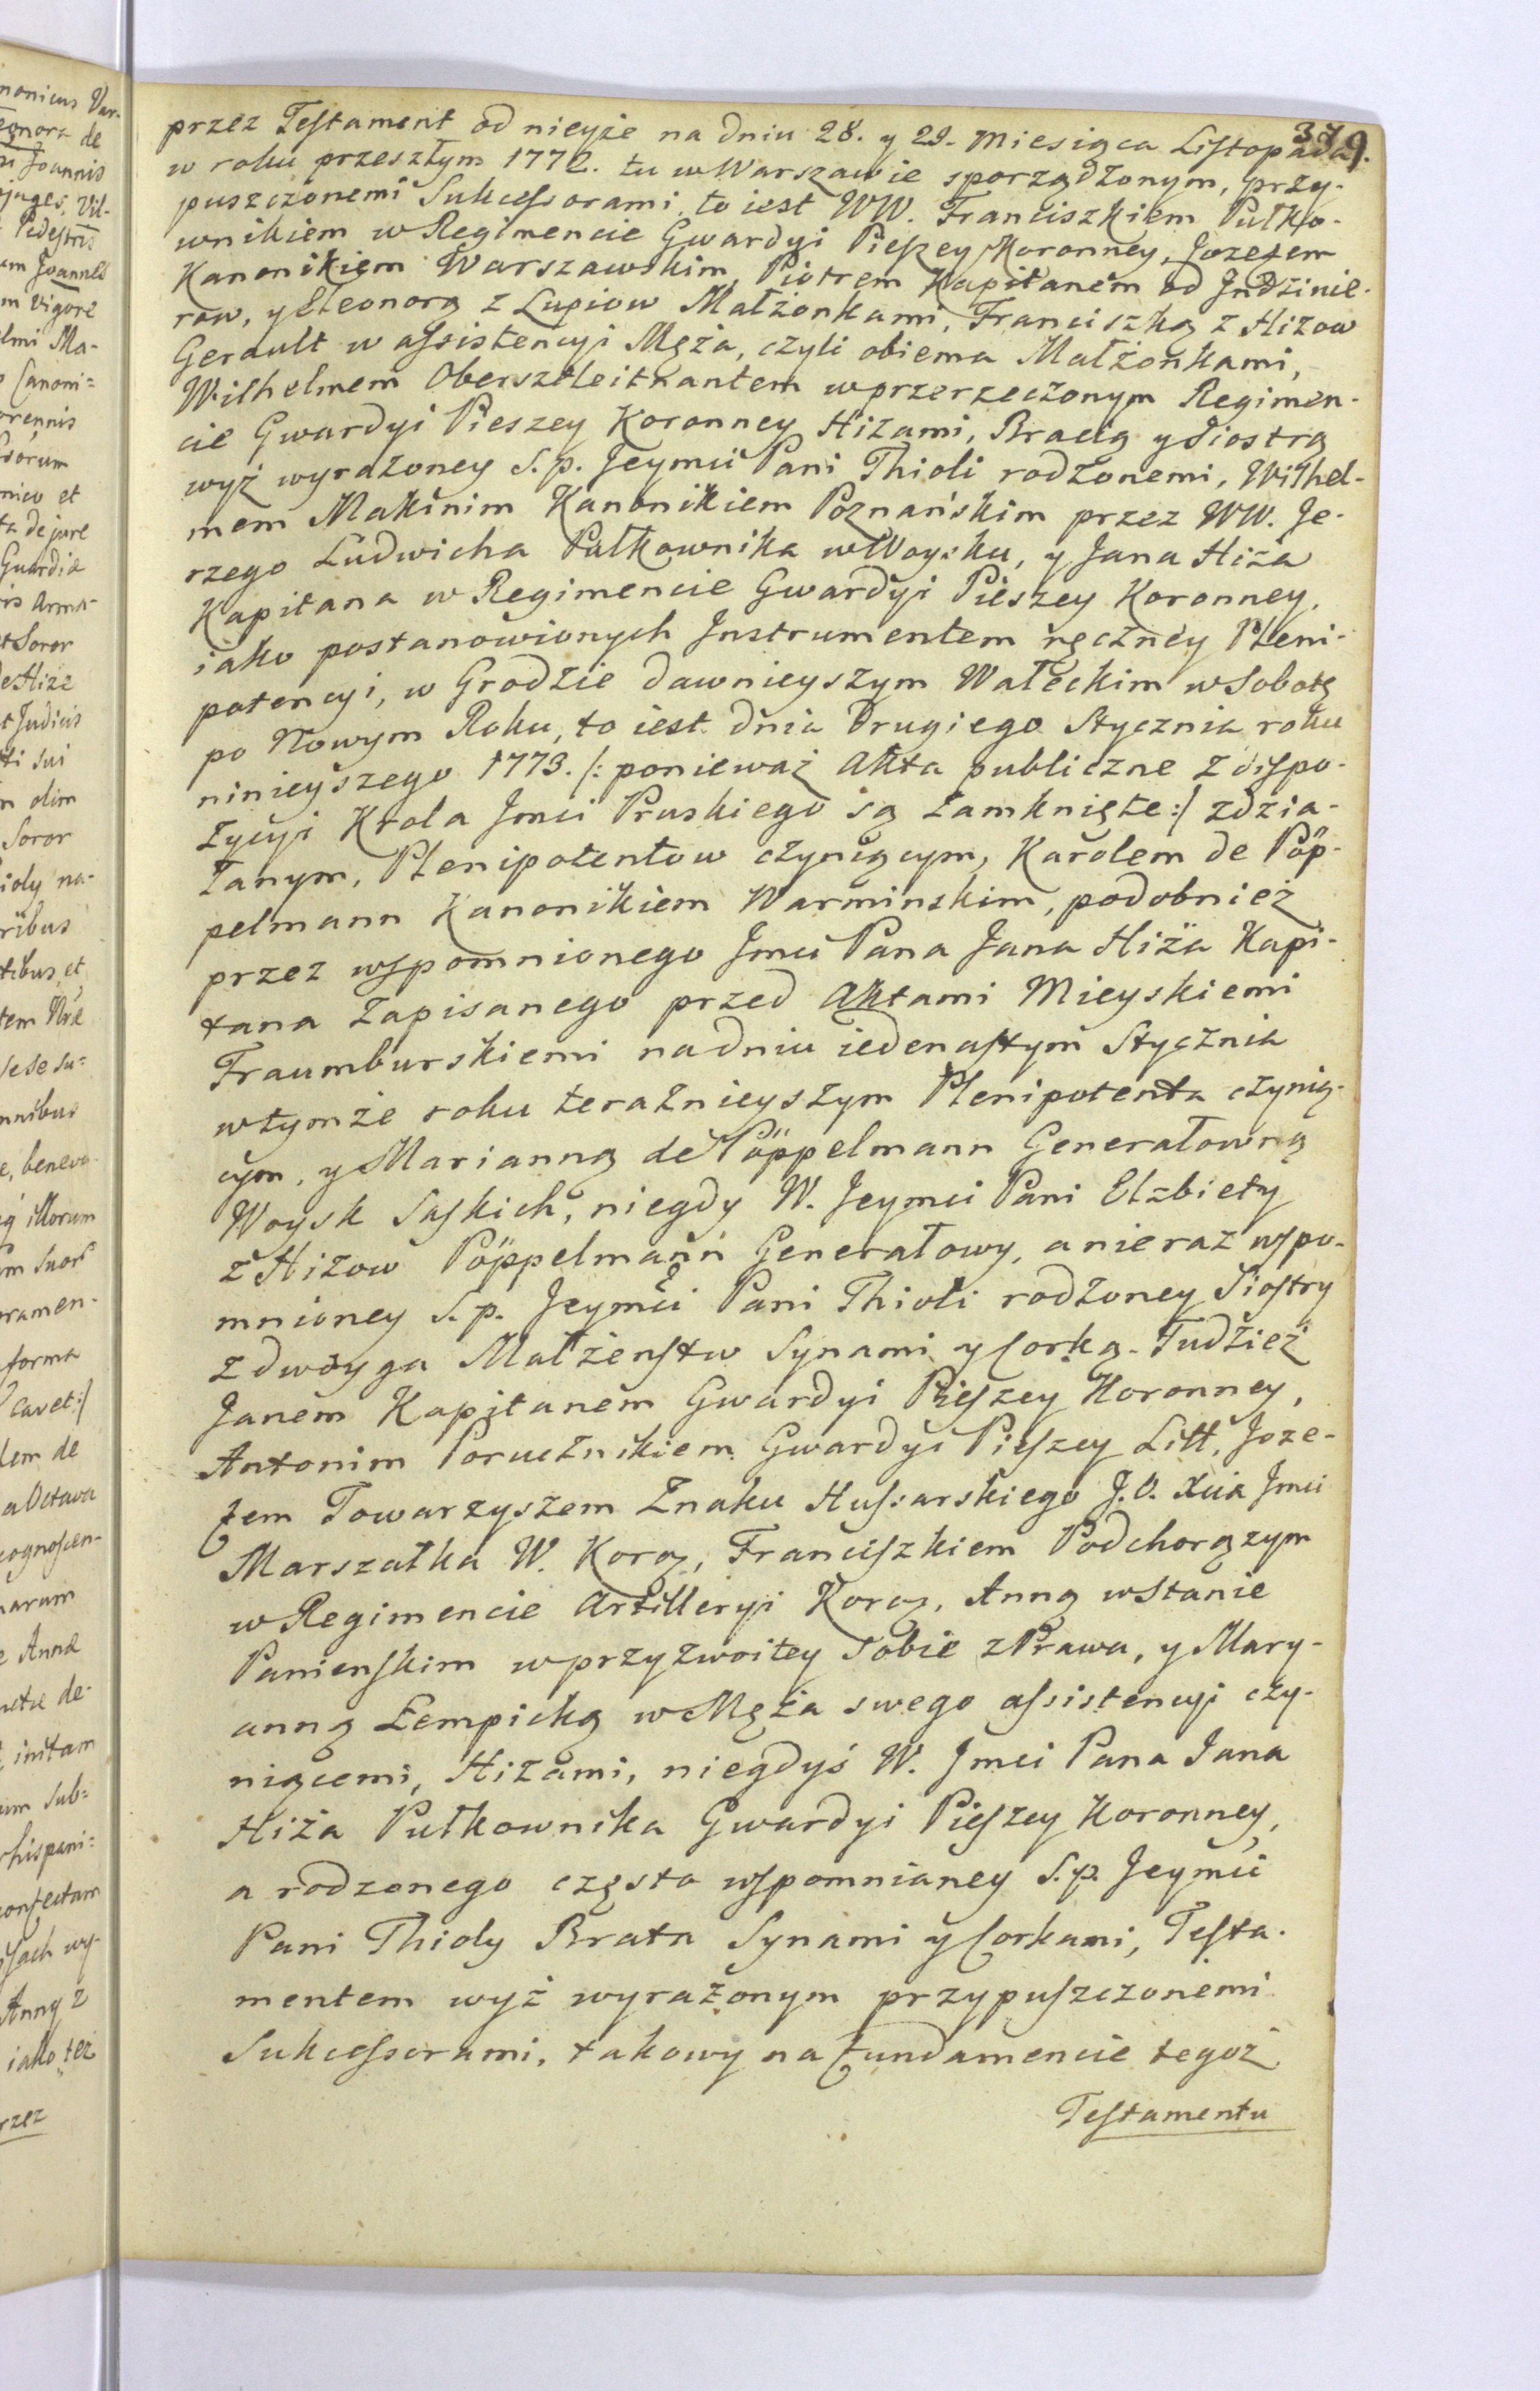 379.
przez Testament od nieyże na dniu 28. y 29. Miesiąca Listopada
w roku przeszłym 1772. tu w Warszawie sporządzonym, przy-
puszczonemi Sukcessorami, to iest WW. Franciszkiem Pułko-
wnikiem w Regimencie Gwardyi Pieszey Koronney, Jozefem
Kanonikiem Warszawskim, Piotrem Kapitanem od Jndzinie-
row, y Eleonorą z Lupiow Małżonkami, Franciszką z Hizow
Gerault w assistencyi Męża, czyli obiema Małżonkami,
Wilhelmem Obersztleitnantem w przerzeczonym Regimen-
cie Gwardyi Pieszey Koronney Hizami, Bracią y Siostrą
wyż wyrażoney S. p. Jeymći Pani Thioli rodzonemi, Wilhel-
mem Makinim Kanonikiem Poznańskim przez WW. Je-
rzego Ludwicha Pułkownika w Woysku, y Jana Hiża
Kapitana w Regimencie Gwardyi Pieszey Koronney,
iako postanowionych Jnstrumentem ręczney Pleni-
potencyi, w Grodzie dawnieyszym Wałeckim w Sobotę
po Nowym Roku, to iest dnia Drugiego Stycznia roku
ninieyszego 1773. /: ponieważ Akta publiczne z dispo-
zycyi Krola Jmci Pruskiego są zamknięte :/ zdzia-
łanym, Plenipotentow czyniącym, Karolem de Pöp-
pelmann Kanonikiem Warminskim, podobnież
przez wspomnionego Jmci Pana Jana Hiża Kapi-
tana Zapisanego przed Aktami Mieyskiemi
Fraumburskiemi na dniu iedenastym Stycznia
w tymże roku teraznieyszym Plenipotenta czynią-
cym, y Marianną de Pöppelmann Generałowną
Woysk Saskich, niegdy W. Jeymci Pani Elzbiety
z Hizow Pöppelmann Generałowy, a nieraz wspo-
mnioney S. p. Jeymći Pani Thioli rodzoney Siostry
z dwoyga Małżenstw Synami y Corką. Tudzież
Janem Kapitanem Gwardyi Pieszey Koronney,
Antonim Porucznikiem Gwardyi Pieszey Litt, Joze-
fem Towarzyszem Znaku Hussarskiego J. O. Xcia Jmci
Marszałka W. Koroz, Franciszkiem Podchorązym
w Regimencie Artilleryi Koroz, Anną w Stanie
Panienskim w przyzwoitey Sobie z Prawa, y Mary-
anną Łempicką w Męża swego assistencyi czy-
niącemi, Hizami, niegdyś W. Jmci Pana Jana
Hiża Pułkownika Gwardyi Pieszey Koronney,
a rodzonego często wspomnianey S. p. Jeymći
Pani Thioly Brata Synami y Corkami, Testa-
mentem wyż wyrażonym przypuszczonemi
Sukcessorami, takowy na fundamencie tegoż
Testamentu